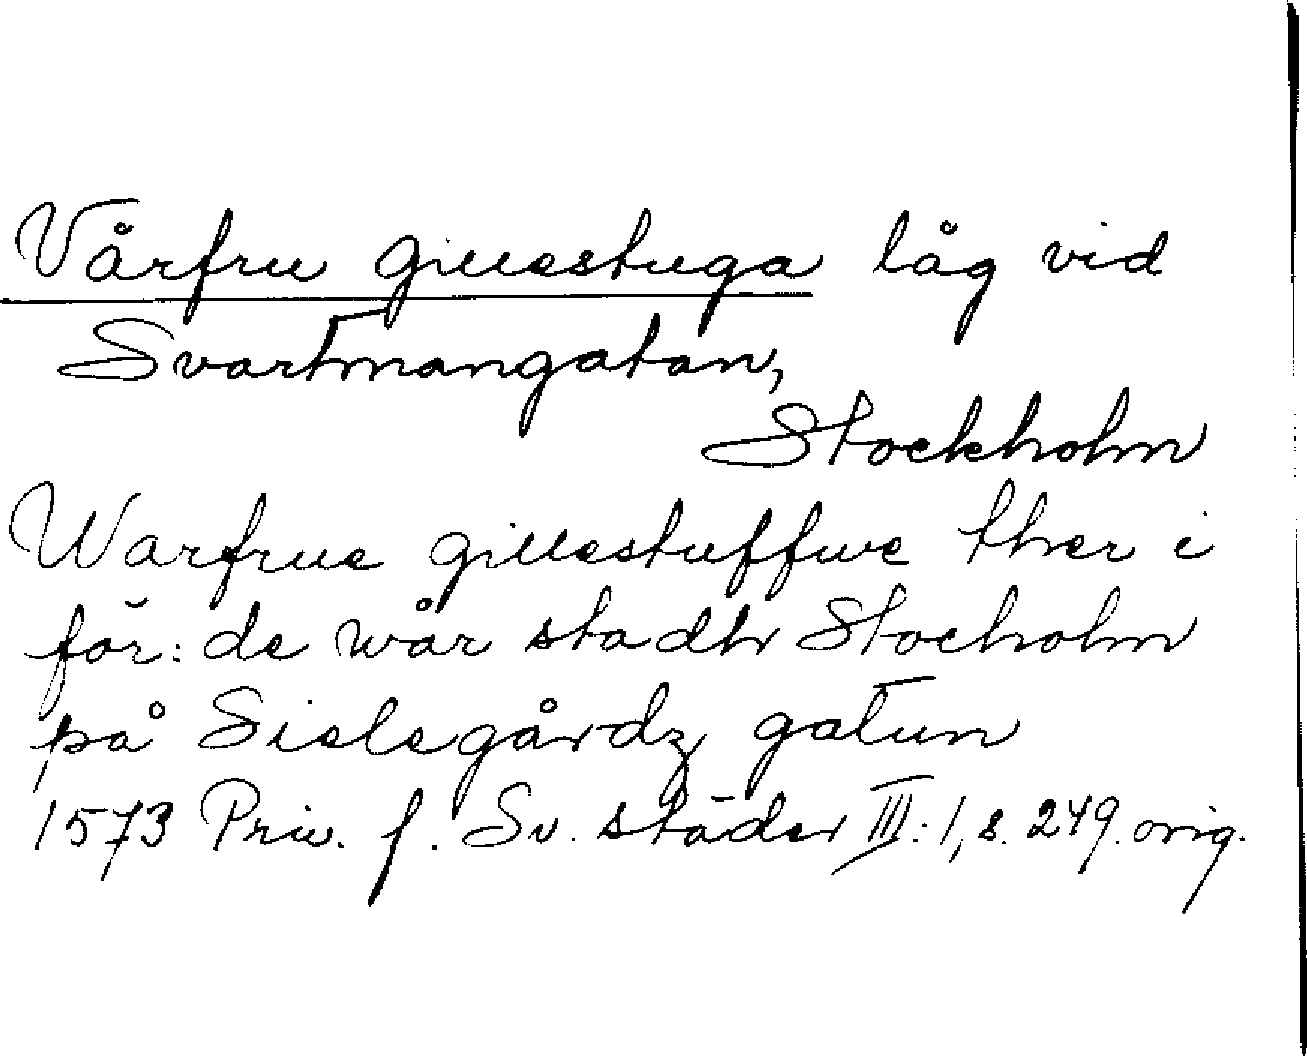 Vårfru gillestuga låg vid
Svartmangatan,
Stockholm
Warfrue gillestuffwe ther i
för: de wår stadh Stocholm
på Sielegårdz gatun
1573 Priv. f. Sv. städer III: 1, s. 249. orig.